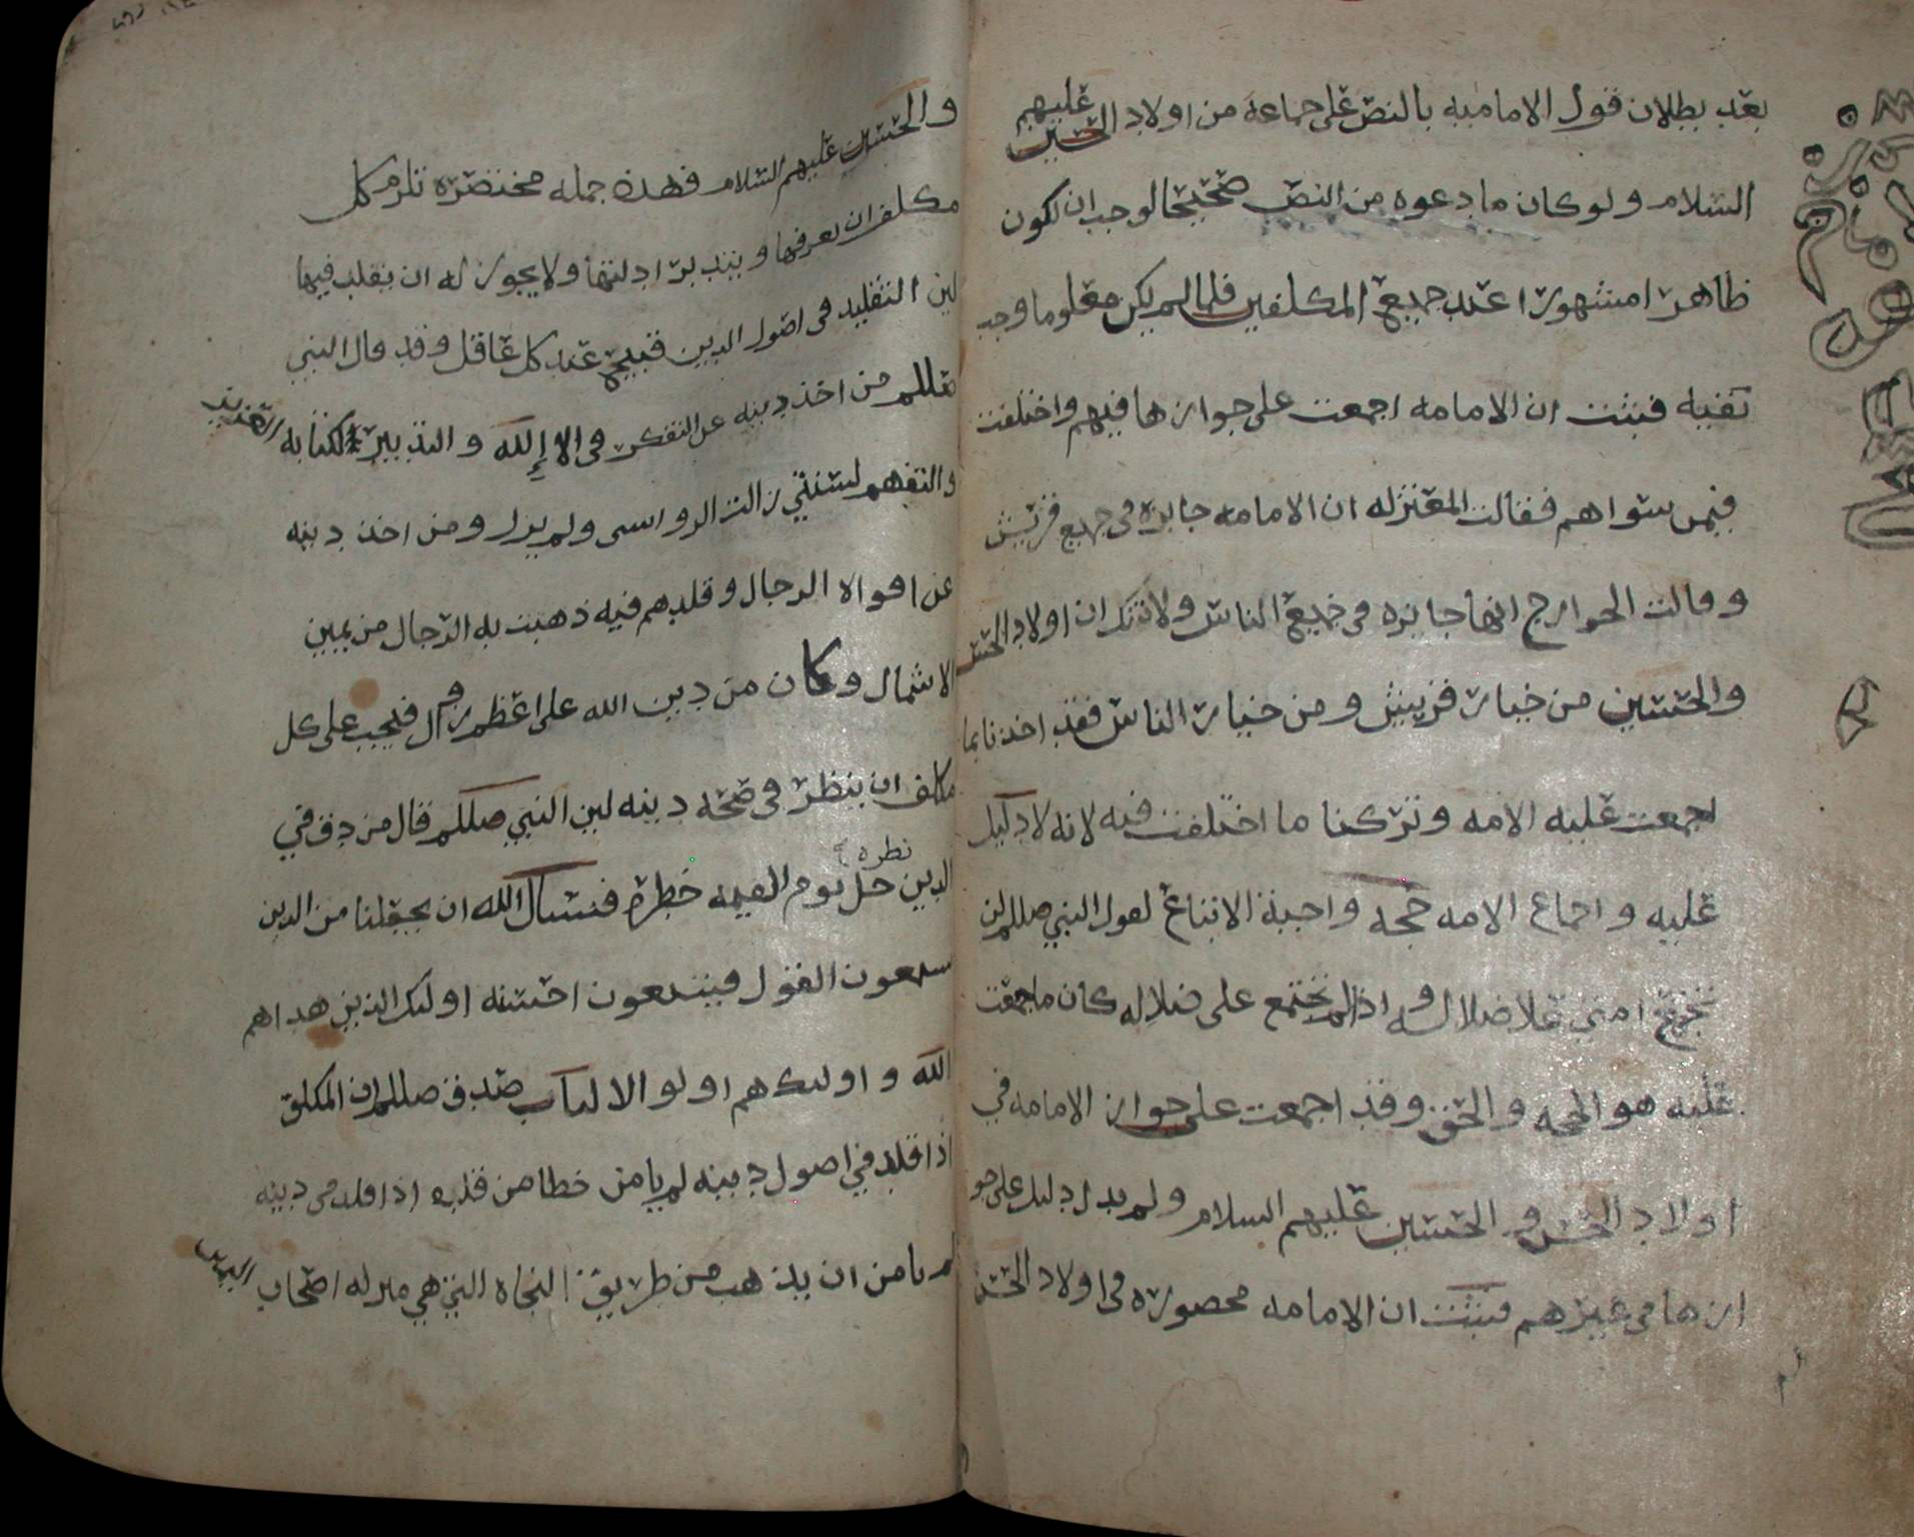 بعد بطلان قول الاماميه بالنص على جماعة من اولاد الحسين عليهم
السلام ولو كان ما دعوه من النص صحيحا لوجب ان يكون
ظاهرا مشهورا عند جميع المكلفين فلما لم يكن معلوما وجب
نفيه فثبت ان الامامه اجمعت على جوازها فيهم واختلفت
فيمن سواهم فقالت المعتزله ان الامامه جايزه في جميع قريش
وقالت الخوارج انها جايزه في جميع الناس ولا شك ان اولاد الحسن
والحسين من خيار قريش ومن خيار الناس فقد اخذنا بما
اجمعت عليه الامه وتركنا ما اختلفت فيه لانه لا دليل
عليه واجماع الامه حجه واجبة الاتباع لقول النبي صللم لن
تجتمع امتي علا ضلاله واذا لم تجتمع على ضلاله كان ما اجمعت
عليه هو الحجه والحق وقد اجمعت على جواز الامامه في
اولاد الحسن والحسين عليهم السلام ولم يدل دليل على جو
ازها في غيرهم فثبت ان الامامه محصوره في اولاد الحسن
والحسين عليهم السلام فهذه جمله مختصره تلزم كل
مكلف ان يعرفها ويتدبر ادلتها ولا يجوز له ان يقلد فيها
لين التقليد في اصول الدين قبيح عند كل عاقل وقد قال النبي
صللم من اخذ دينه عن التفكر في الا إلله والتدبير لكتابه
والتفهم لسنتي زالت الرواسى ولم يزل ومن اخذ دينه
عن افواه الرجال وقلدهم فيه ذهبت به الرجال من يمين
الا شمال وكان من دين الله على اعظم زوال فيجب على كل
مكلف ان ينظر في صحه دينه لين النبي صللم قال من دق في
الدين نظره جل يوم القيمه خطره فنسال الله ان يجعلنا من الذين
يسمعون القول فيتبعون احسنه اوليك الذين هداهم
الله واوليك هم اولو الالباب صدق صللم ان المكلف
اذا قلد في اصول دينه لم يامن خطا من قلده اذا قلد في دينه
لم يامن ان يذهب من طريق النجاه التي هي منزله اصحاب اليمين